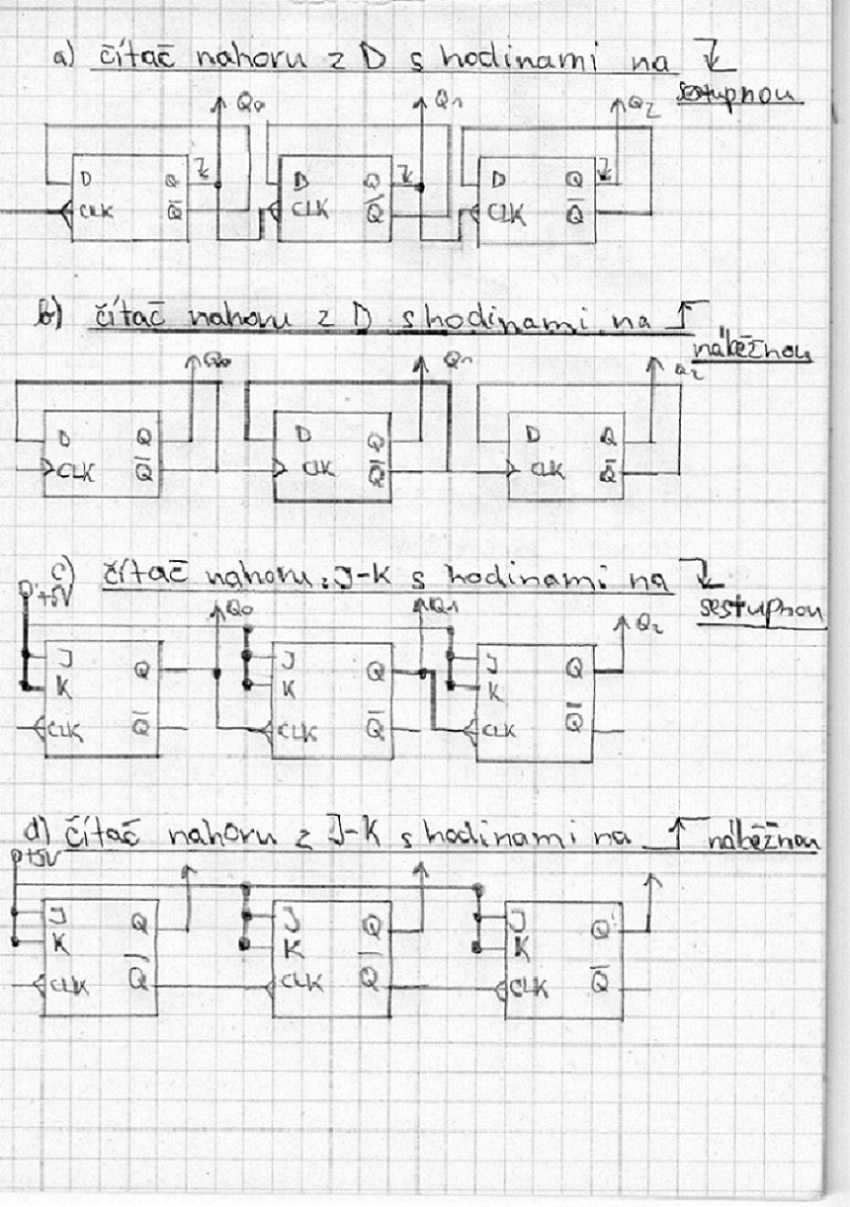 a) čítač nahoru z D s hodinami na
sestupnou
Q0 Q1 Q2
D Q D Q D Q
CLK Q̅ CLK Q̅ CLK Q̅
b) čítač nahoru z D s hodinami na
náběžnou
Q0 Q1 Q2
D Q D Q D Q
CLK Q̅ CLK Q̅ CLK Q̅
c) čítač nahoru z J-K s hodinami na
sestupnou
+5V Q0 Q1 Q2
J Q J Q J Q
K K K
CLK Q̅ CLK Q̅ CLK Q̅
d) čítač nahoru z J-K s hodinami na náběžnou
+5V
J Q J Q J Q
K K K
CLK Q̅ CLK Q̅ CLK Q̅